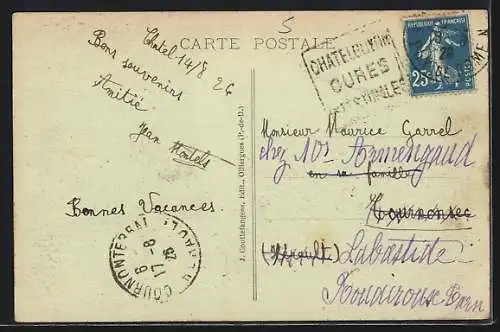 5
CARTE POSTALE
Chatel 14/8 26
Bons souvenirs
Amitié
Jean
Bonnes Vacances.
J. Gouttefangeas, Edit., Olliergues (P.-de-D.)
CHATELGUYON
CURES
REPUBLIQUE FRANÇAISE
25c
POSTES
Monsieur Maurice Garrel
chez Mr Armengaud
en sa famille
Cournonsec
(Hérault) Labastide
Rouairoux Tarn
COURNONTERRAL
HERAULT
17-8
26